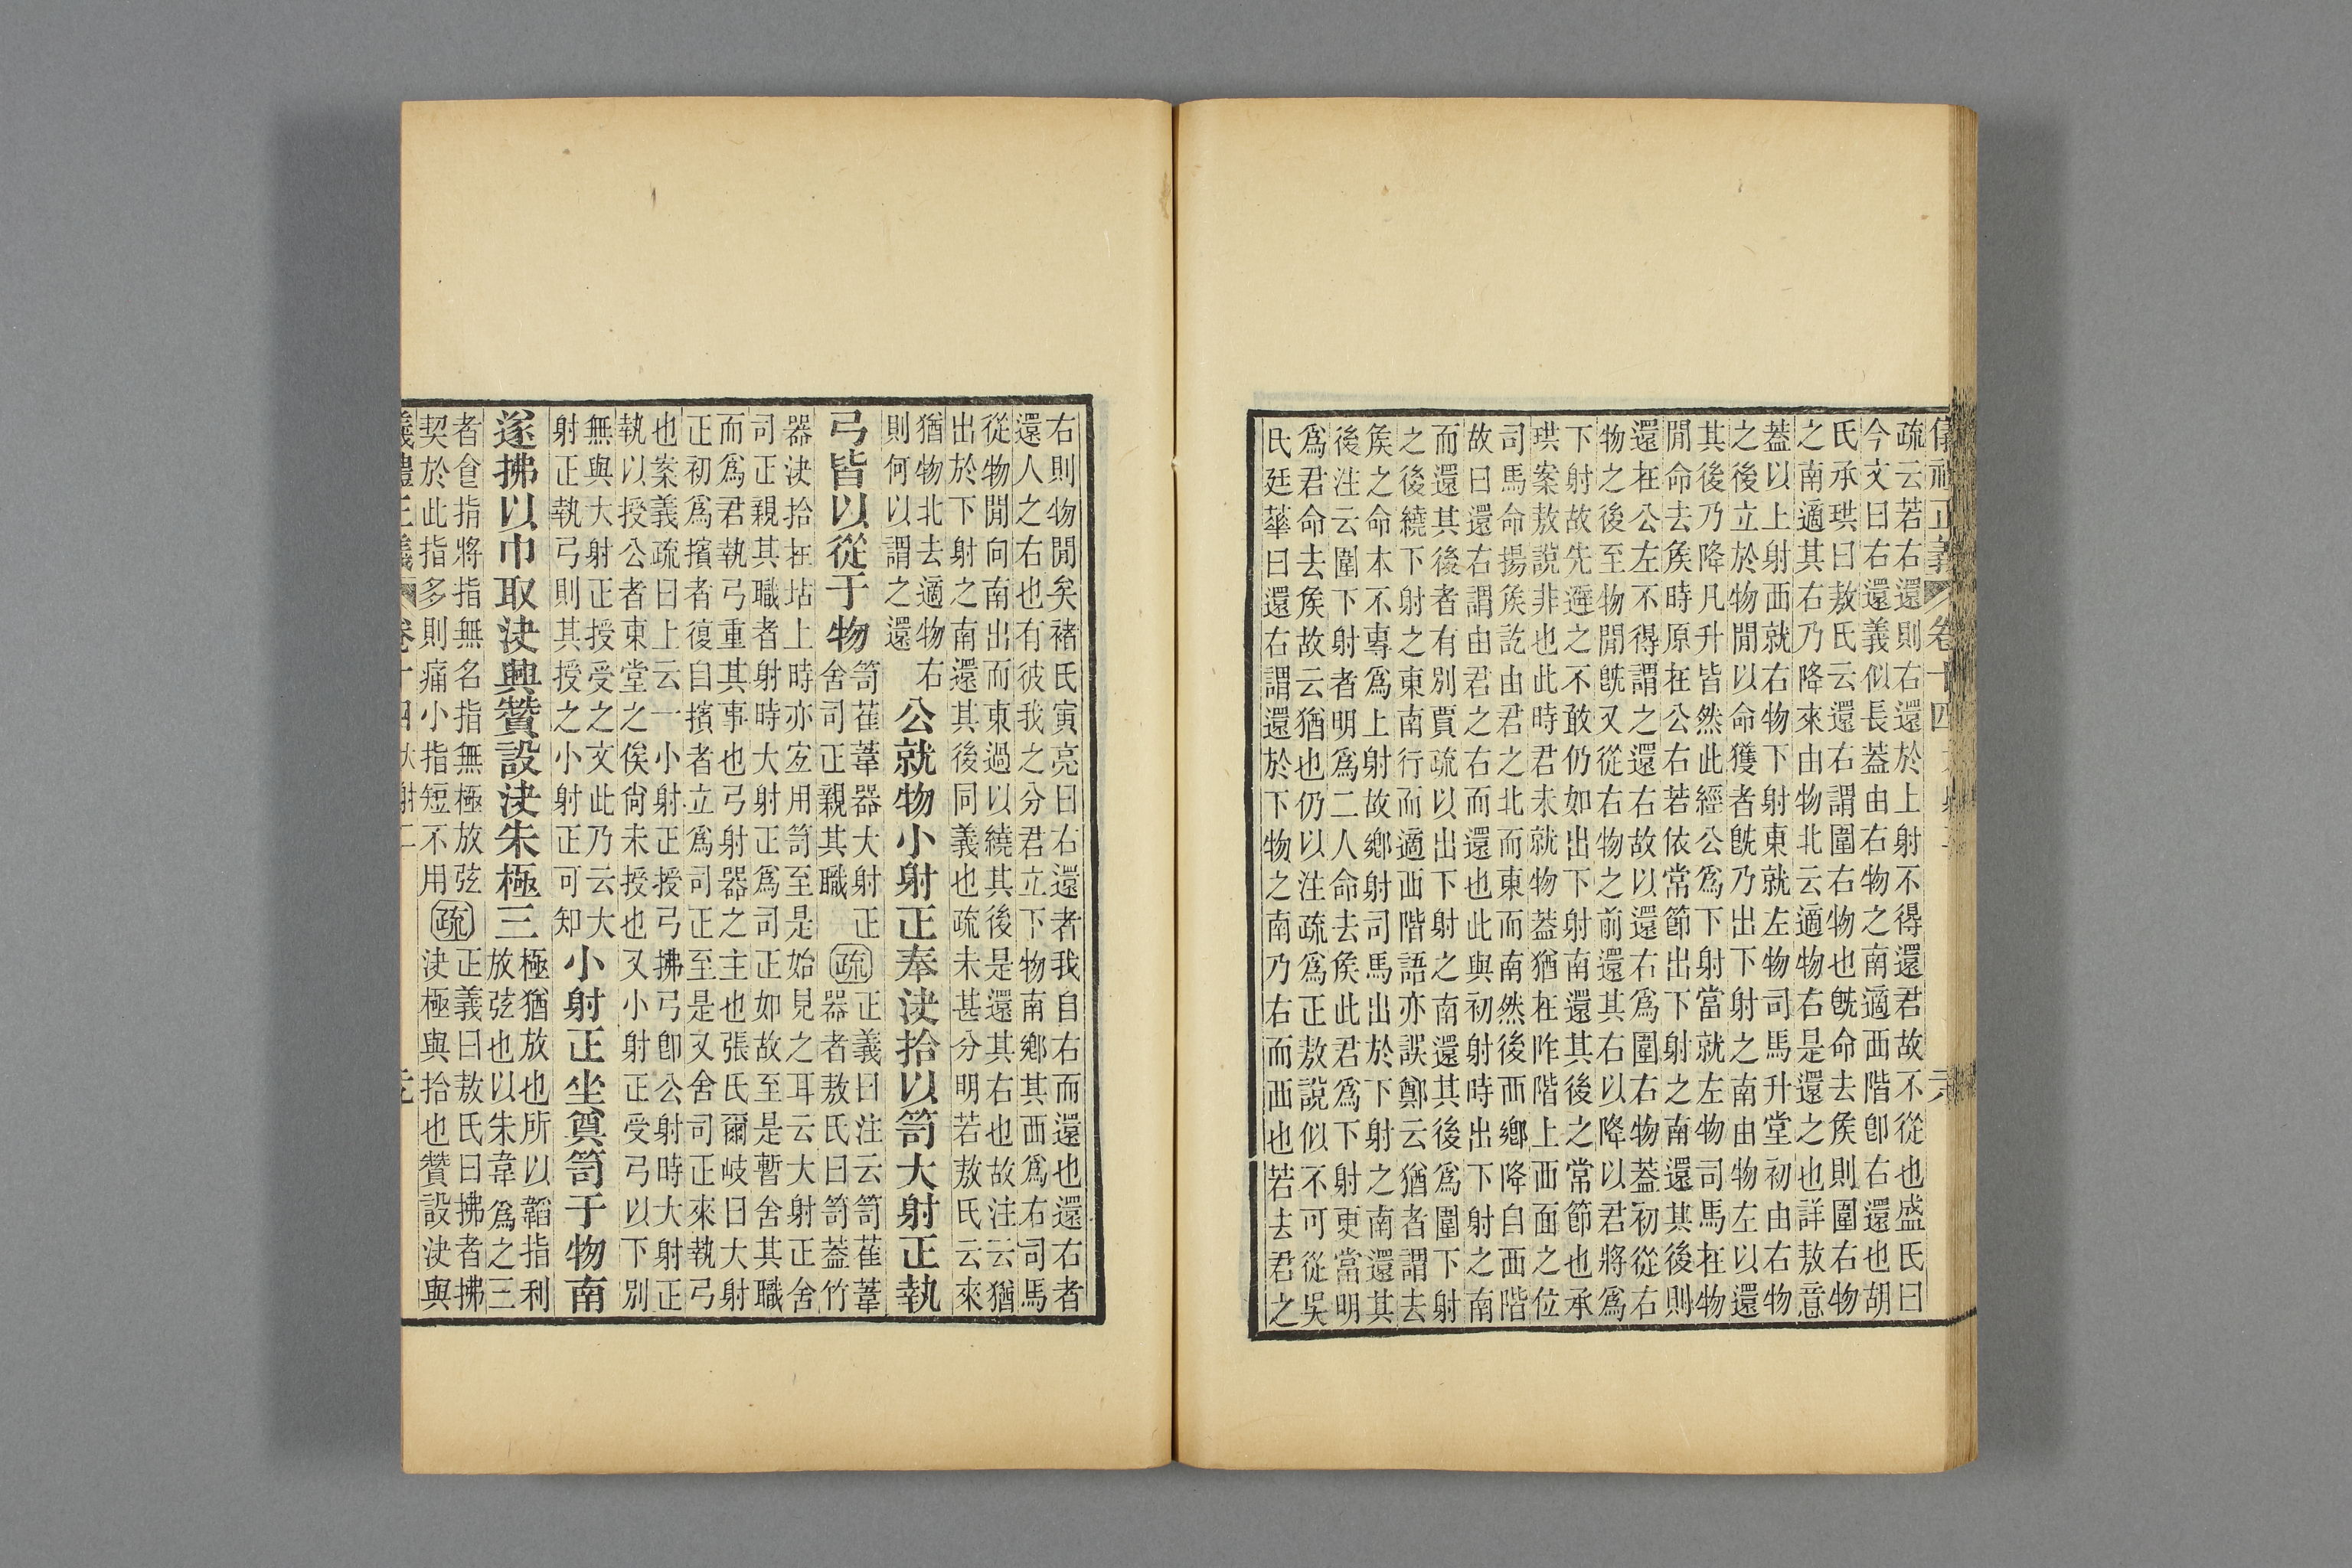 疏云若右還則右還於上射不得還君故不從也盛氏曰
今文曰右還義似長蓋由右物之南適西階卽右還也胡
氏承珙曰敖氏云還右謂圍右物也旣命去矦則圍右物
之南適其右乃降來由物北云適物右是還之也詳敖意
蓋以上射西就右物下射東就左物司馬升堂初由右物
之後立於物閒以命獲者旣乃出下射之南由物左以還
其後乃降凡升皆然此經公爲下射當就左物司馬在物
閒命去矦時原在公右若依常節出下射之南還其後則
還在公左不得謂之還右故以還右爲圍右物蓋初從右
物之後至物閒旣又從右物之前還其右以降以君將爲
下射故先避之不敢仍如出下射南還其後之常節也承
珙案敖說非也此時君未就物蓋猶在阼階上西面之位
司馬命揚矦訖由君之北而東而南然後西鄕降自西階
故曰還右謂由君之右而還也此與初射時出下射之南
而還其後者有別賈疏以出下射之南還其後爲圍下射
之後繞下射之東南行而適西階語亦誤鄭云猶者謂去
矦之命本不專爲上射故鄕射司馬出於下射之南還其
後注云圍下射者明爲二人命去矦此君爲下射更當明
爲君命去矦故云猶也仍以注疏爲正敖說似不可從吳
氏廷華曰還右謂還於下物之南乃右而西也若去君之
右則物閒矣褚氏寅亮曰右還者我自右而還也還右者
還人之右也有彼我之分君立下物南鄕其西爲右司馬
從物閒向南出而東過以繞其後是還其右也故注云猶
出於下射之南還其後同義也疏未甚分明若敖氏云來
猶物北去適物右
則何以謂之還
公就物小射正奉決拾以笥大射正執
弓皆以從于物
笥萑葦器大射正
舍司正親其職
疏
正義曰注云笥萑葦
器者敖氏曰笥蓋竹
器決拾在坫上時亦宐用笥至是始見之耳云大射正舍
司正親其職者射時大射正爲司正如故至是暫舍其職
而爲君執弓重其事也弓射器之主也張氏爾岐曰大射
正初爲擯者復自擯者立爲司正至是又舍司正來執弓
也案義疏曰上云一小射正授弓拂弓卽公射時大射正
執以授公者東堂之俟尙未授也又小射正受弓以下別
無與大射正授受之文此乃云大
射正執弓則其授之小射正可知
小射正坐奠笥于物南
遂拂以巾取決興贊設決朱極三
極猶放也所以韜指利
放弦也以朱韋爲之三
者食指將指無名指無極放弦
契於此指多則痛小指短不用
疏
正義曰敖氏曰拂者拂
決極與拾也贊設決與